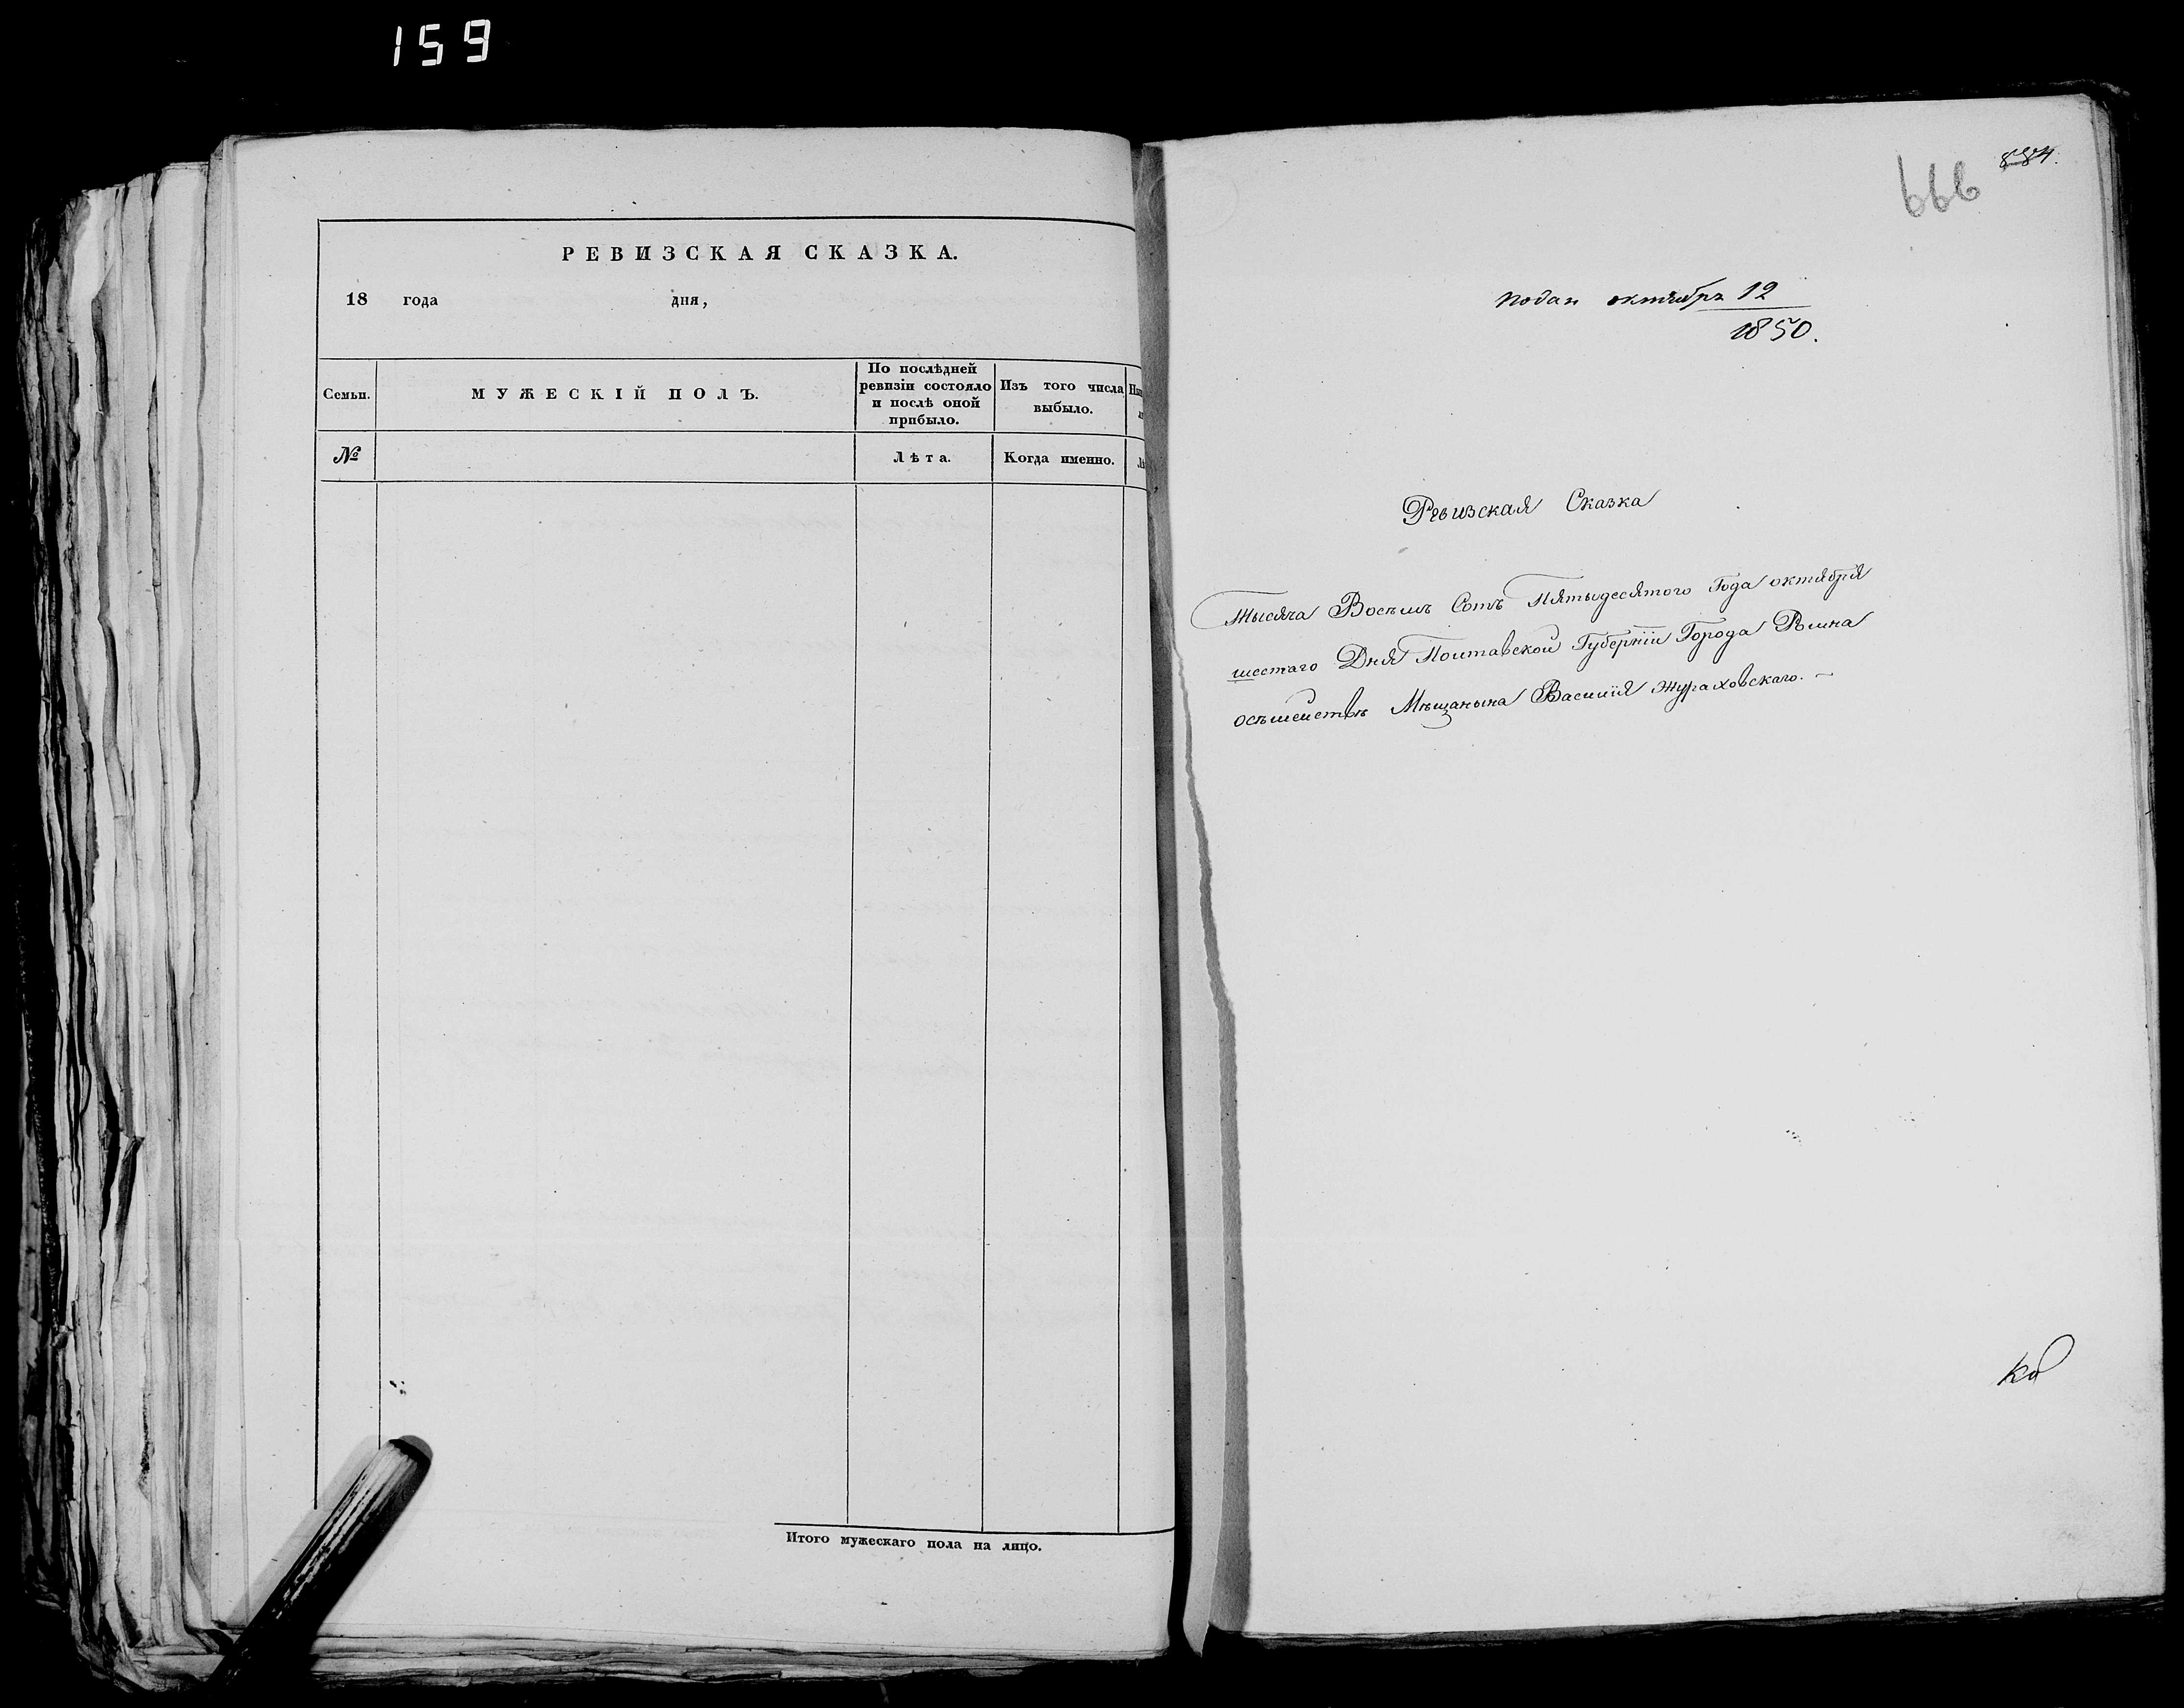 159
РЕВИЗСКАЯ СКАЗКА.
18 года дня,
Семьи.
МУЖЕСКІЙ ПОЛЪ.
По послѣдней
ревизіи состояло
и послѣ оной
прибыло.
Изъ того числа
выбыло.
№
Лѣта.
Когда именно.
Итого мужескаго пола на лицо.
884.
666
подан октября 12
1850.
Ревизская Сказка
Тысяча Восемъ Сотъ Пятыдесятого Года октября
шестаго Дня Полтавской Губерніи Города Ромна
осѣмействѣ Мѣщанына Василія Жураховскаго. –